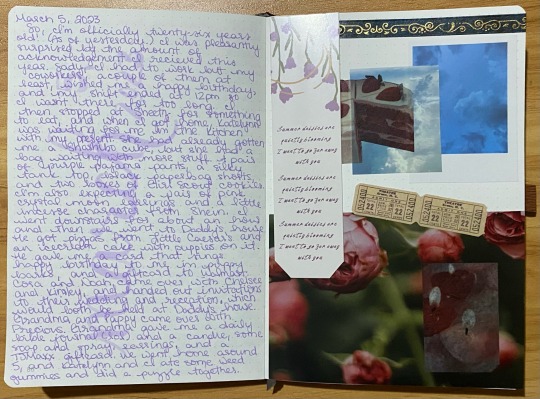 March 5, 2023
So, I'm officially twenty-six years
old! As of yesterday, I was pleasantly
surprised by the amount of
acknowledgement I recieved this
year. Sadly, I had to work but my
coworkers, a couple of them at
least, wished me a happy birthday,
and my shift was at 12pm so
I wasn't there for too long. I
then stopped at for something
to eat and when I got home, Katelynn
was waiting for me in the kitchen
with my present. She had already gotten
me a but she had a
bag waiting with more stuff. A pair
of purple pajama pants, a silky
tank top, blue paperbag shorts
and two boxes of Girl Scout cookies.
I'm also expecting a pair of pink
crystal moon earrings and a little
charm from Shein. I
went downstairs for about an hour
and then we went to Daddy's house.
He got pizzas from Little Caesars and
an icecream cake with cupids on it.
He gave me a card that sings
happy birthday to me in
and a giftcard to Walmart.
Cora and Noah came over with Chelsee
and and handed out invitations
to their wedding and reception, which
would both be held at Daddy's house.
Grandma and Pappy came over with
Precious. Grandma gave me a daily
bible journal and a candle, some
soap and spray, earrings, and a
TJMaxx giftcard. We went home around
5, and Katelynn and I ate some weed
gummies and did a puzzle together.
Summer daisies are
quietly blooming
I want to go far away
with you
Summer daisies are
quietly blooming
I want to go far away
with you
Summer daisies are
quietly blooming
I want to go far away
with you